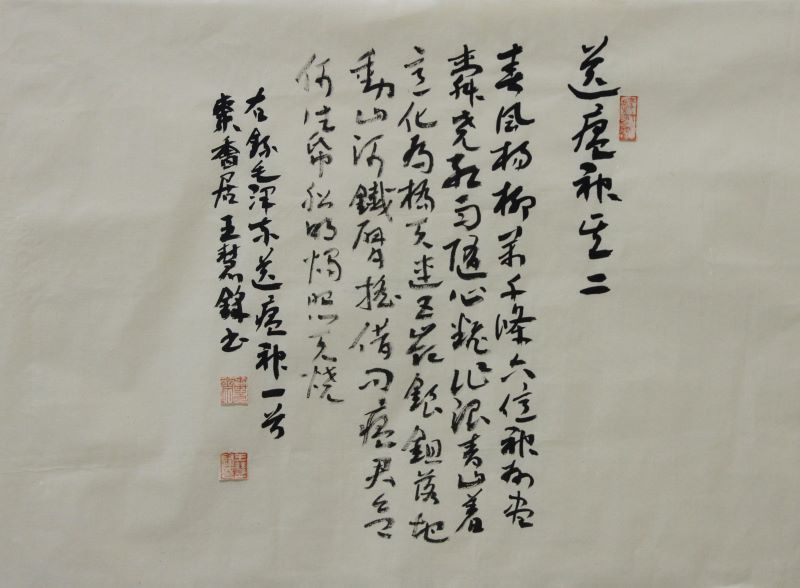 送瘟神其二
春風楊柳萬千條六億神州盡
舜堯紅雨隨心翻作浪青山着
意化為橋天連五嶺銀鉏落地
動山河鐵臂搖借問瘟君欲
何往紙船明燭照天燒
右錄毛澤東送瘟神一首
香居王慧書